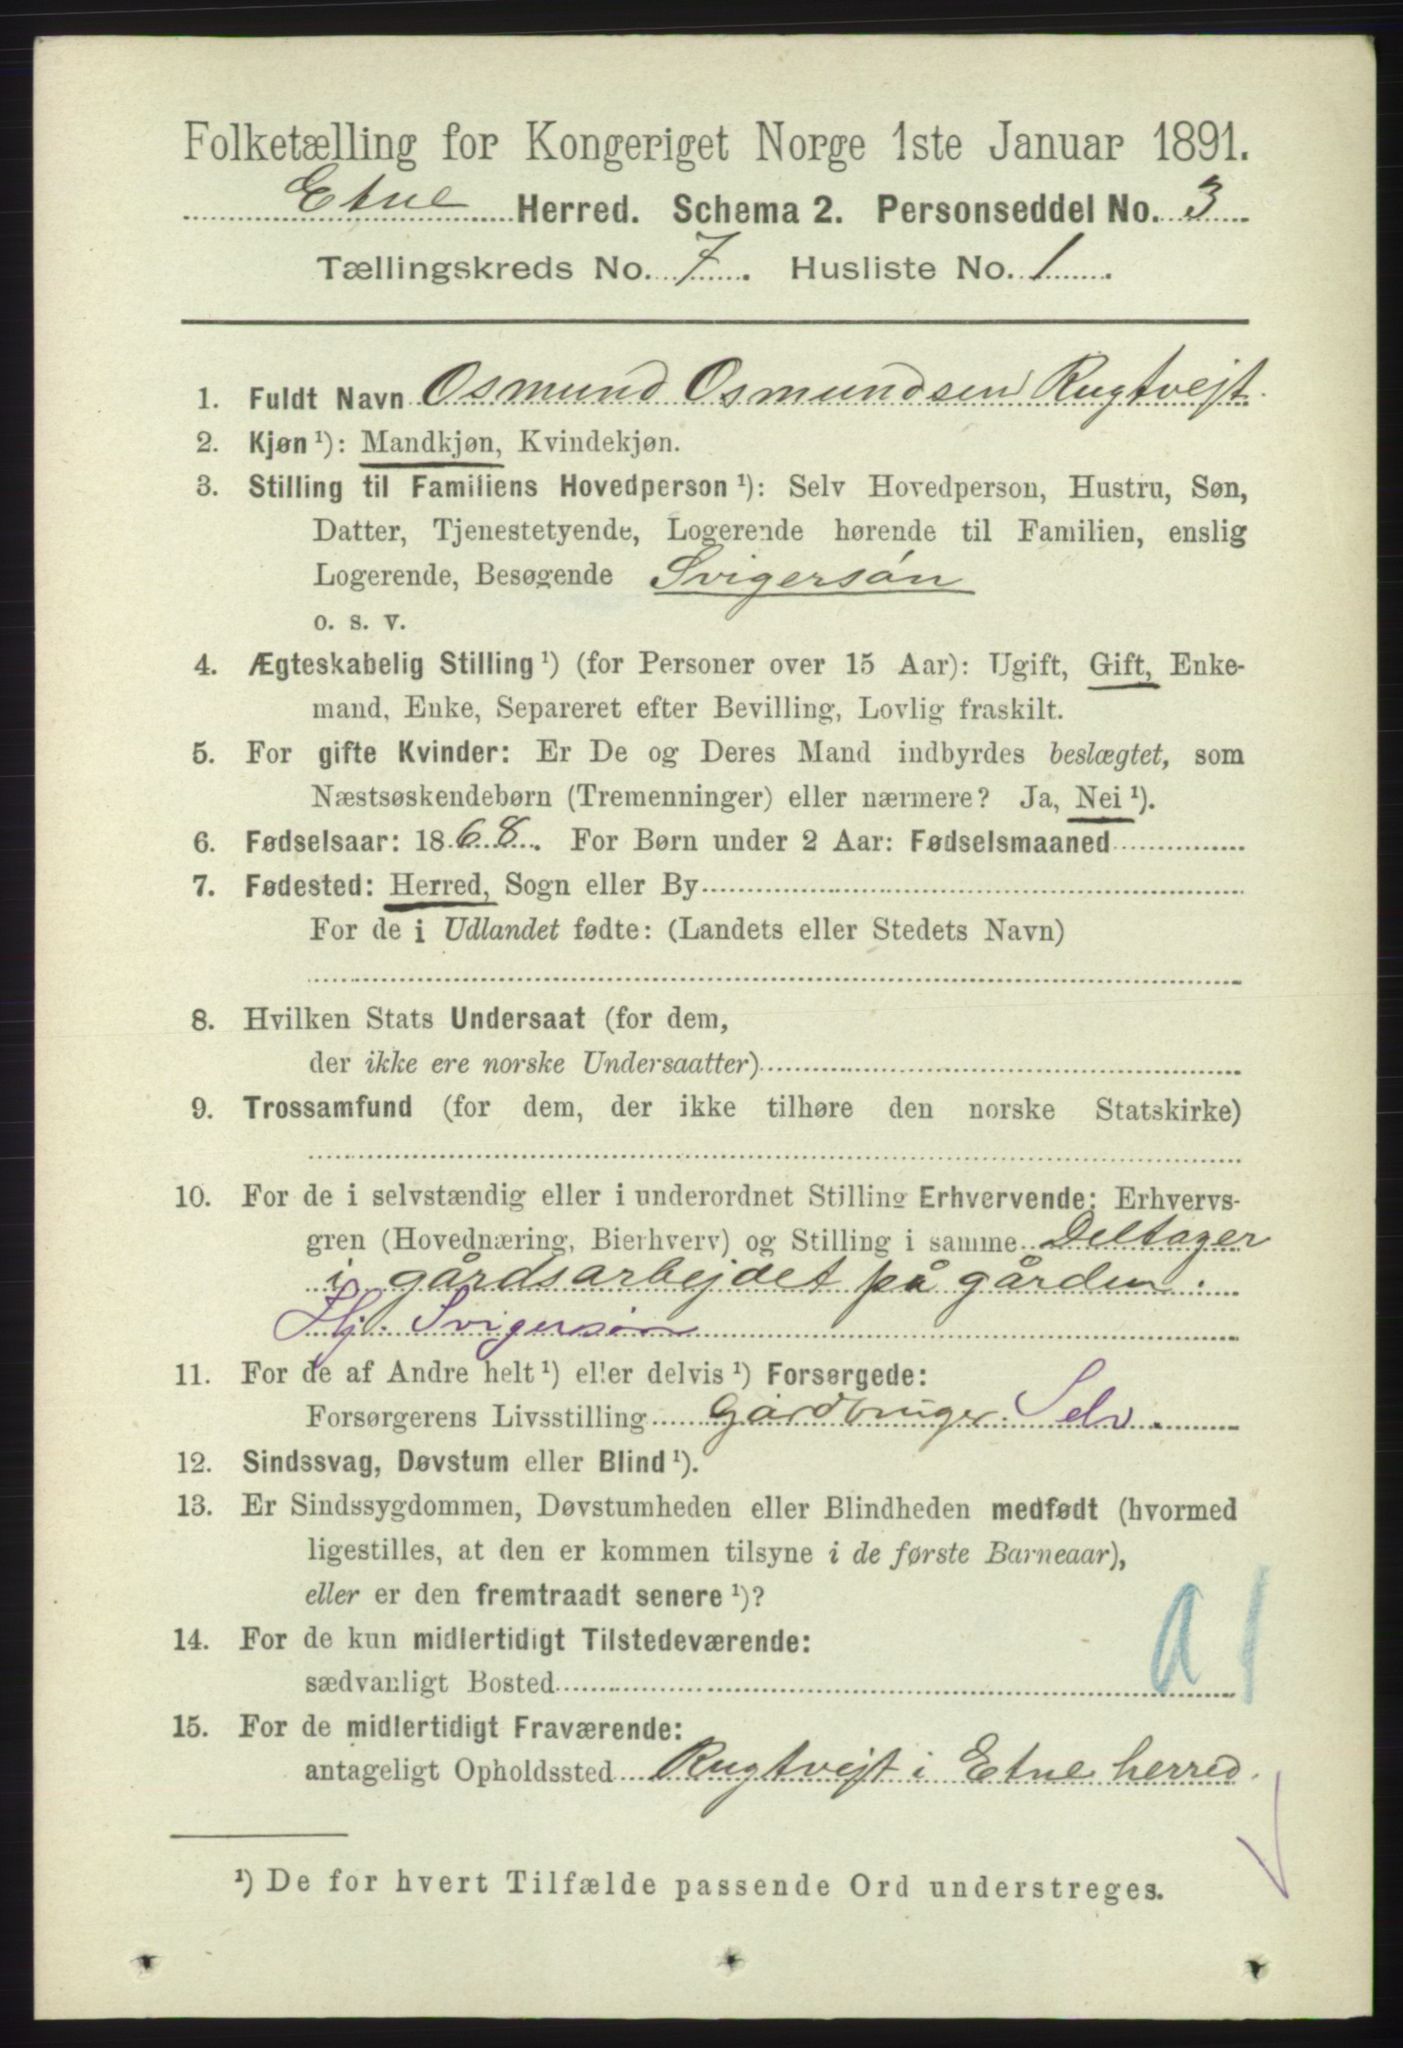 Folketælling for Kongeriget Norge 1ste Januar 1891.
Etne Herred. Schema 2. Personseddel No. 3
Tællingskreds No. 7. Husliste No. 1
1. Fuldt Navn Osmund Osmundsen Rugtvejt.
2. Kjøn ¹): Mandkjøn, Kvindekjøn.
3. Stilling til Familiens Hovedperson ¹): Selv Hovedperson, Hustru, Søn,
Datter, Tjenestetyende, Logerende hørende til Familien, enslig
Logerende, Besøgende Svigersøn
o. s. v.
4. Ægteskabelig Stilling ¹) (for Personer over 15 Aar): Ugift, Gift, Enke-
mand, Enke, Separeret efter Bevilling, Lovlig fraskilt.
5. For gifte Kvinder: Er De og Deres Mand indbyrdes beslægtet, som
Næstsøskendebørn (Tremenninger) eller nærmere? Ja, Nei ¹).
6. Fødselsaar: 1868. For Børn under 2 Aar: Fødselsmaaned
7. Fødested: Herred, Sogn eller By
For de i Udlandet fødte: (Landets eller Stedets Navn)
8. Hvilken Stats Undersaat (for dem,
der ikke ere norske Undersaatter)
9. Trossamfund (for dem, der ikke tilhøre den norske Statskirke)
10. For de i selvstændig eller i underordnet Stilling Erhvervende: Erhvervs-
gren (Hovednæring, Bierhverv) og Stilling i samme Deltager
i gårdsarbejdet på gården.
Hj. Svigersøn
11. For de af Andre helt ¹) eller delvis ¹) Forsørgede:
Forsørgerens Livsstilling Gårdbruger. Selv.
12. Sindssvag, Døvstum eller Blind ¹).
13. Er Sindssygdommen, Døvstumheden eller Blindheden medfødt (hvormed
ligestilles, at den er kommen tilsyne i de første Barneaar),
eller er den fremtraadt senere ¹)?
14. For de kun midlertidigt Tilstedeværende:
sædvanligt Bosted
a 1
15. For de midlertidigt Fraværende:
antageligt Opholdssted Rugtvejt i Etne herred.
¹) De for hvert Tilfælde passende Ord understreges.